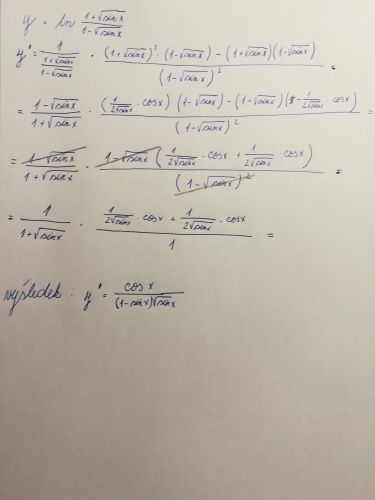 y = ln (1+√sinx)/(1-√sinx)
y' = 1/((1+√sinx)/(1-√sinx)) · ((1+√sinx)' · (1-√sinx) - (1+√sinx)(1-√sinx))/(1-√sinx)² =
= (1-√sinx)/(1+√sinx) · ((1/(2√sinx) · cosx) (1-√sinx) - (1+√sinx)(-1/(2√sinx) · cosx))/(1-√sinx)² =
= (1-√sinx)/(1+√sinx) · (1-√sinx)(1/(2√sinx) · cosx + 1/(2√sinx) cosx)/(1-√sinx)² =
= 1/(1+√sinx) · (1/(2√sinx) · cosx + 1/(2√sinx) · cosx)/1 =
výsledek : y' = cosx/((1-sinx)√sinx)